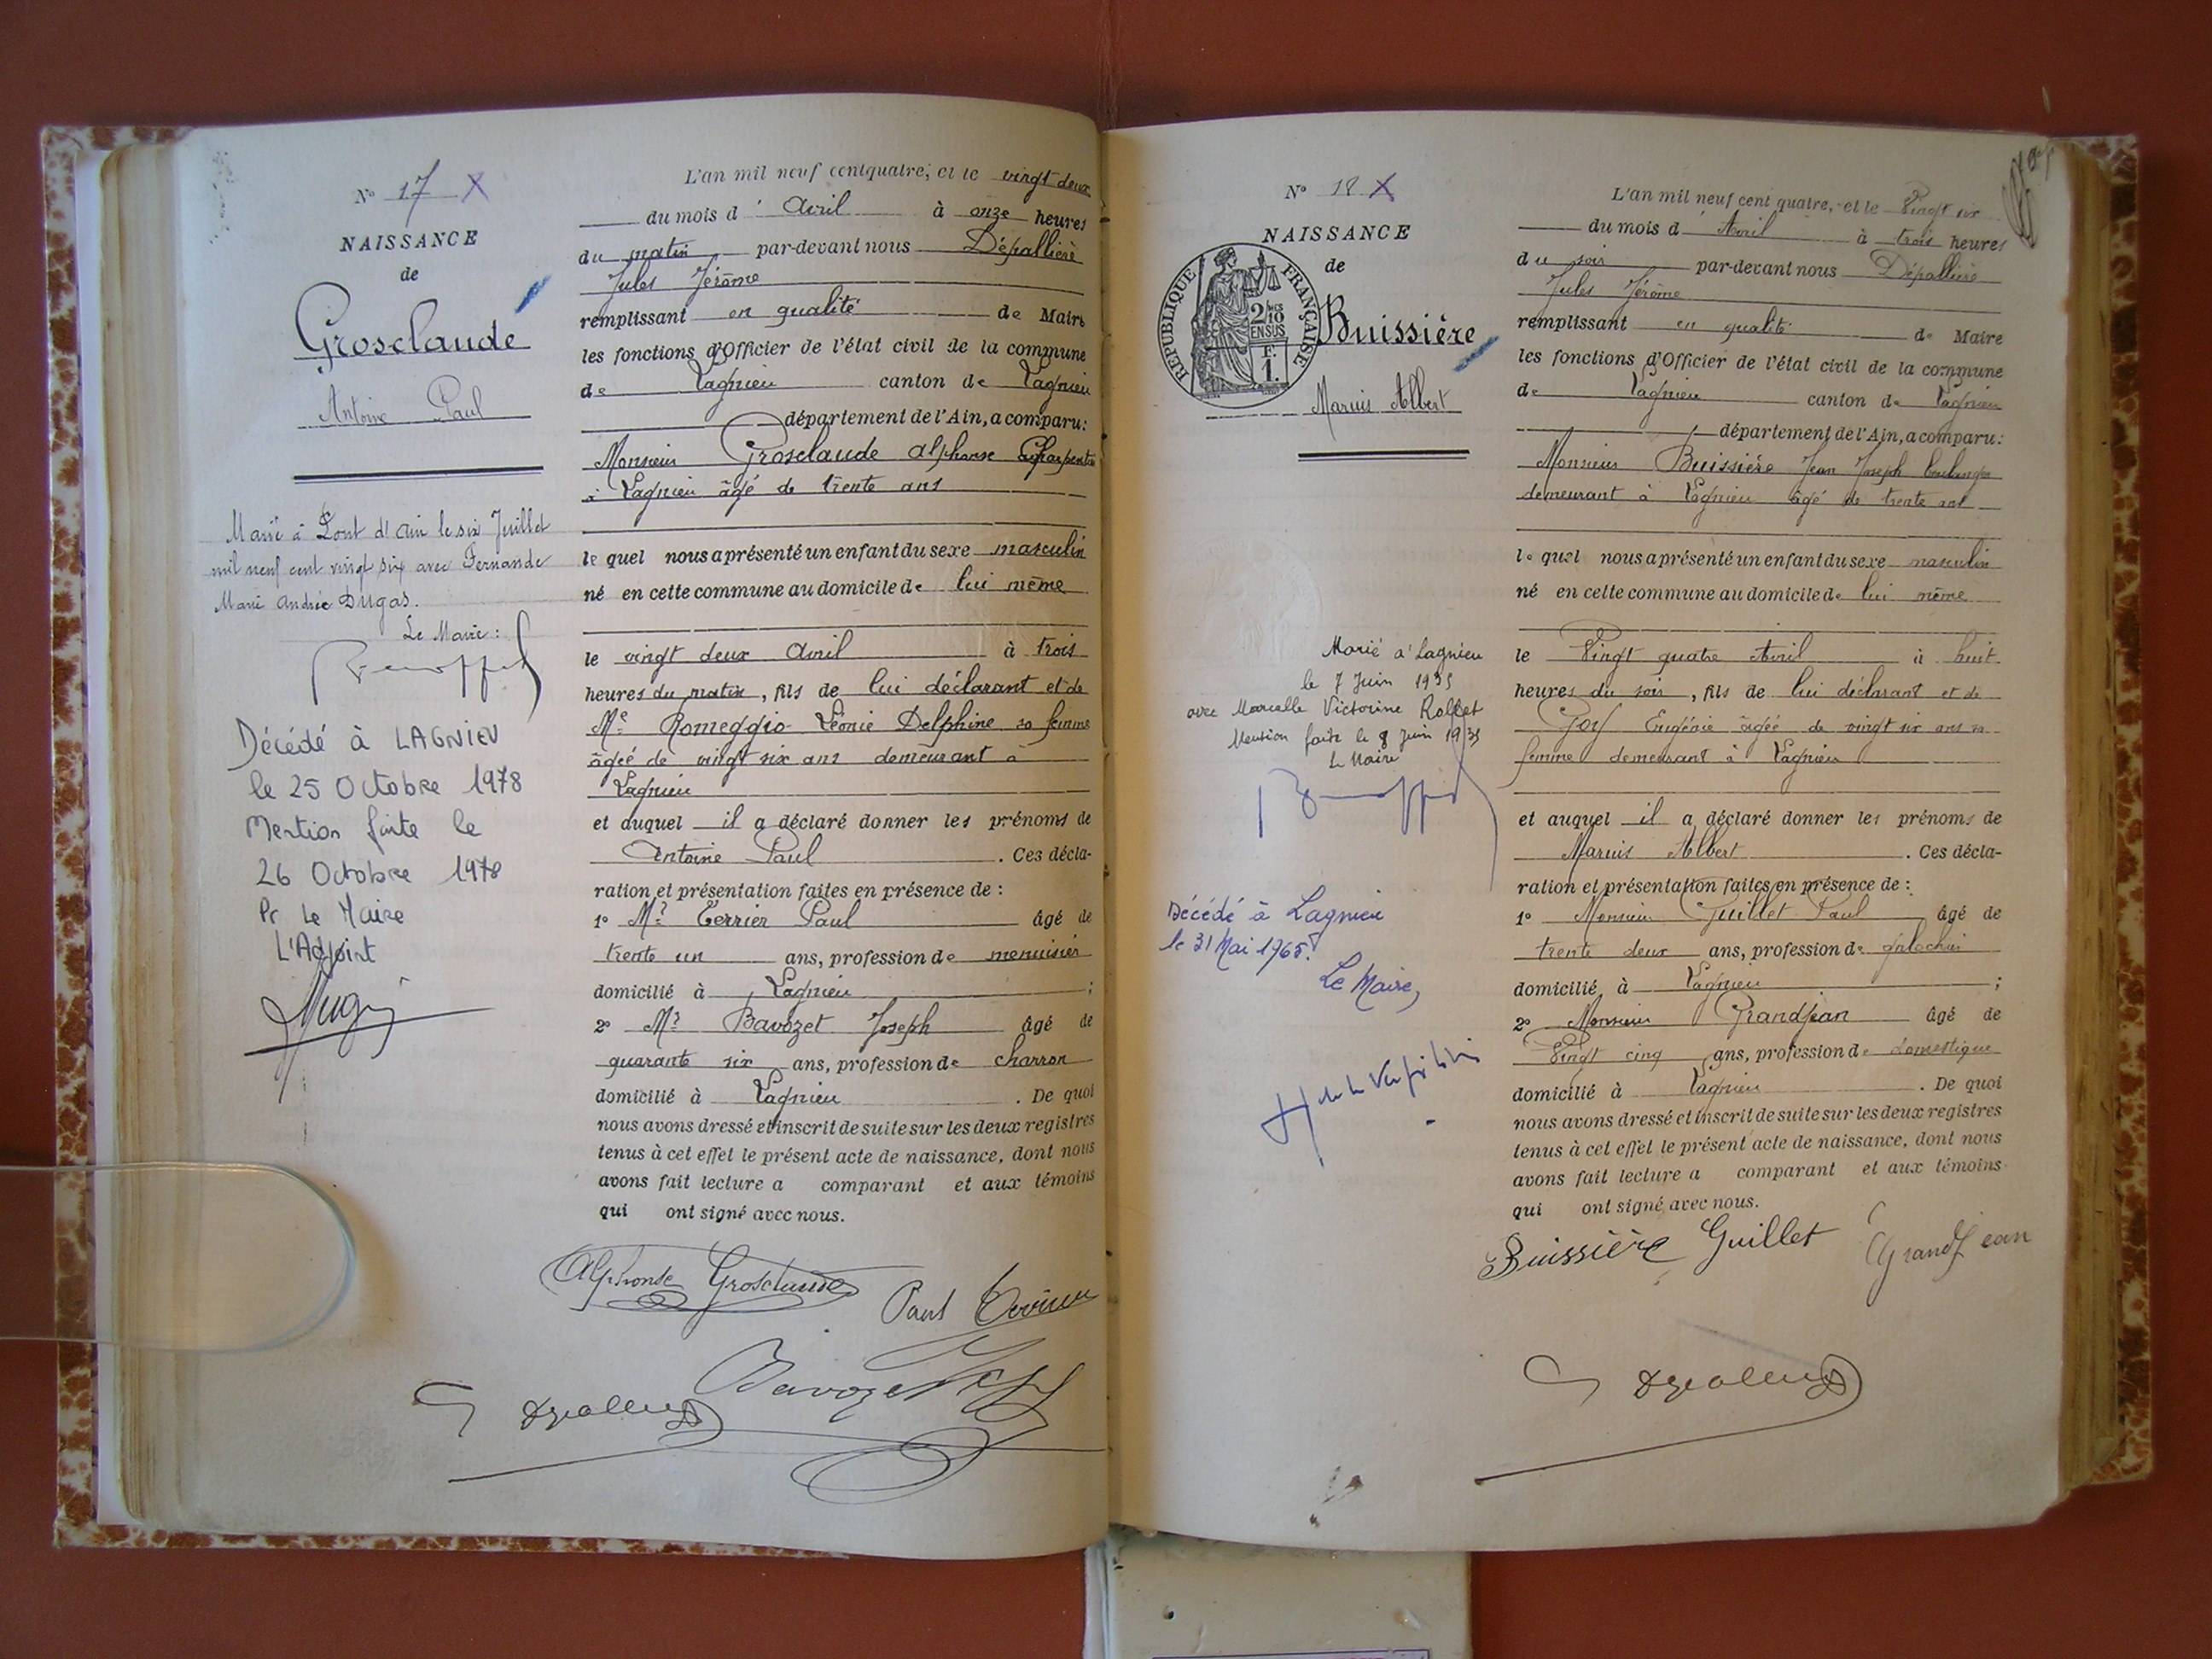 N° 17 X
NAISSANCE
de
Grosclaude
Antoine Paul
Marié à Pont d'Ain le six Juillet
mil neuf cent vingt six avec Fernande
Marie Andrée Dugas.
Le Maire :
Décédé à LAGNIEU
le 25 Octobre 1978
Mention faite le
26 Octobre 1978
Pr Le Maire
L'Adjoint
L'an mil neuf cent quatre, et le vingt deux
du mois d' Avril à onze heures
du matin par-devant nous Dépallière
Jules Jérôme
remplissant en qualité de Maire
les fonctions d'Officier de l'état civil de la commune
de Lagnieu canton de Lagnieu
département de l'Ain, a comparu :
Monsieur Grosclaude Alphonse Charpentier
à Lagnieu âgé de trente ans
le quel nous a présenté un enfant du sexe masculin
né en cette commune au domicile de lui même
le vingt deux Avril à trois
heures du matin, fils de lui déclarant et de
Me Romeggio Léonie Delphine sa femme
âgée de vingt six ans demeurant à
Lagnieu
et auquel il a déclaré donner les prénoms de
Antoine Paul . Ces décla-
ration et présentation faites en présence de :
1° Mr Terrier Paul âgé de
trente un ans, profession de menuisier
domicilié à Lagnieu ;
2° Mr Bavozet Joseph âgé de
quarante six ans, profession de charron
domicilié à Lagnieu . De quoi
nous avons dressé et inscrit de suite sur les deux registres
tenus à cet effet le présent acte de naissance, dont nous
avons fait lecture a comparant et aux témoins
qui ont signé avec nous.
Alphonse Grosclaude
Paul Terrier
Bavozet
N° 18 X
NAISSANCE
de
RÉPUBLIQUE FRANÇAISE
2/10 EN SUS
F. 1.
Buissière
Marius Albert
Marié à Lagnieu
le 7 Juin 1935
avec Marcelle Victorine Rollet
Mention faite le 8 Juin 1935
Le Maire
Décédé à Lagnieu
le 31 Mai 1965.
Le Maire,
L'an mil neuf cent quatre, et le Vingt six
du mois d' Avril à trois heures
du soir par-devant nous Dépallière
Jules Jérôme
remplissant en qualité de Maire
les fonctions d'Officier de l'état civil de la commune
de Lagnieu canton de Lagnieu
département de l'Ain, a comparu :
Monsieur Buissière Jean Joseph boulanger
demeurant à Lagnieu âgé de trente ans
le quel nous a présenté un enfant du sexe masculin
né en cette commune au domicile de lui même
le Vingt quatre Avril à huit
heures du soir, fils de lui déclarant et de
Goy Eugénie âgée de vingt six ans sa
femme demeurant à Lagnieu
et auquel il a déclaré donner les prénoms de
Marius Albert . Ces décla-
ration et présentation faites en présence de :
1° Monsieur Guillet Paul âgé de
trente deux ans, profession de galochier
domicilié à Lagnieu ;
2° Monsieur Grandjean âgé de
Vingt cinq ans, profession de domestique
domicilié à Lagnieu . De quoi
nous avons dressé et inscrit de suite sur les deux registres
tenus à cet effet le présent acte de naissance, dont nous
avons fait lecture a comparant et aux témoins
qui ont signé avec nous.
Buissière Guillet Grandjean